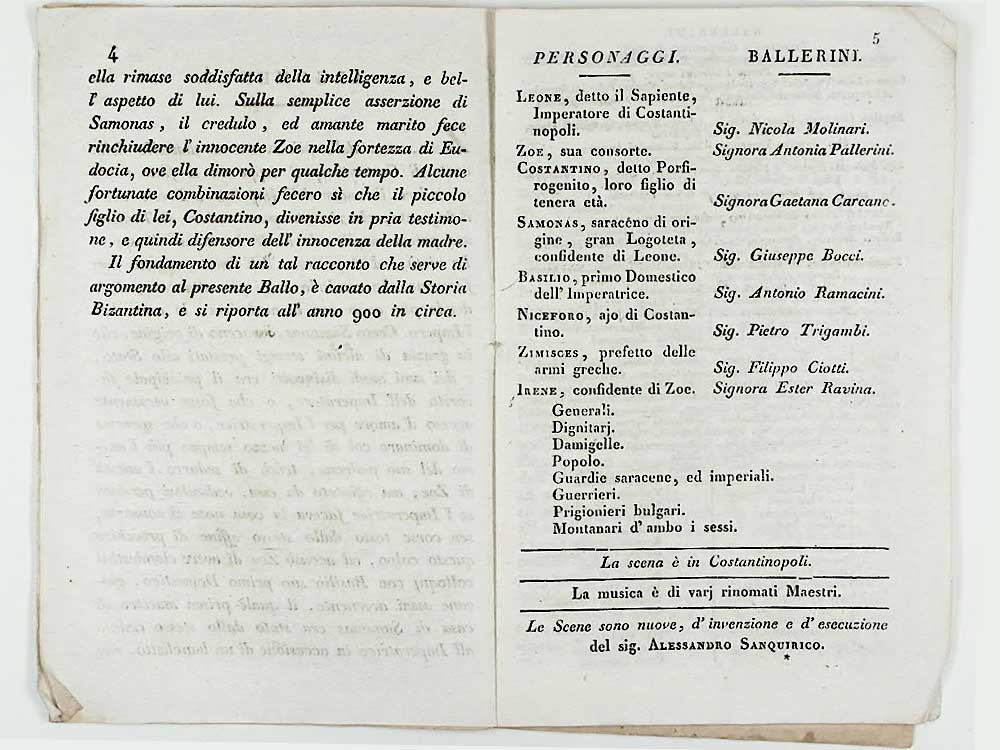 4
ella rimase soddisfatta della intelligenza, e bel-
l' aspetto di lui. Sulla semplice asserzione di
Samonas, il credulo, ed amante marito fece
rinchiudere l'innocente Zoe nella fortezza di Eu-
docia, ove ella dimorò per qualche tempo. Alcune
fortunate combinazioni fecero sì che il piccolo
figlio di lei, Costantino, divenisse in pria testimo-
ne, e quindi difensore dell' innocenza della madre.
Il fondamento di un tal racconto che serve di
argomento al presente Ballo, è cavato dalla Storia
Bizantina, e si riporta all' anno 900 in circa.
5
PERSONAGGI. BALLERINI.
LEONE, detto il Sapiente,
Imperatore di Costanti-
nopoli. Sig. Nicola Molinari.
ZOE, sua consorte. Signora Antonia Pallerini.
COSTANTINO, detto Porfi-
rogenito, loro figlio di
tenera età. Signora Gaetana Carcano.
SAMONAS, saracéno di ori-
gine, gran Logoteta,
confidente di Leone. Sig. Giuseppe Bocci.
BASILIO, primo Domestico
dell' Imperatrice. Sig. Antonio Ramacini.
NICEFORO, ajo di Costan-
tino. Sig. Pietro Trigambi.
ZIMISCES, prefetto delle
armi greche. Sig. Filippo Ciotti.
IRENE, confidente di Zoe. Signora Ester Ravina.
Generali.
Dignitarj.
Damigelle.
Popolo.
Guardie saracene, ed imperiali.
Guerrieri.
Prigionieri bulgari.
Montanari d' ambo i sessi.
La scena è in Costantinopoli.
La musica è di varj rinomati Maestri.
Le Scene sono nuove, d' invenzione e d' esecuzione
del sig. ALESSANDRO SANQUIRICO.
*